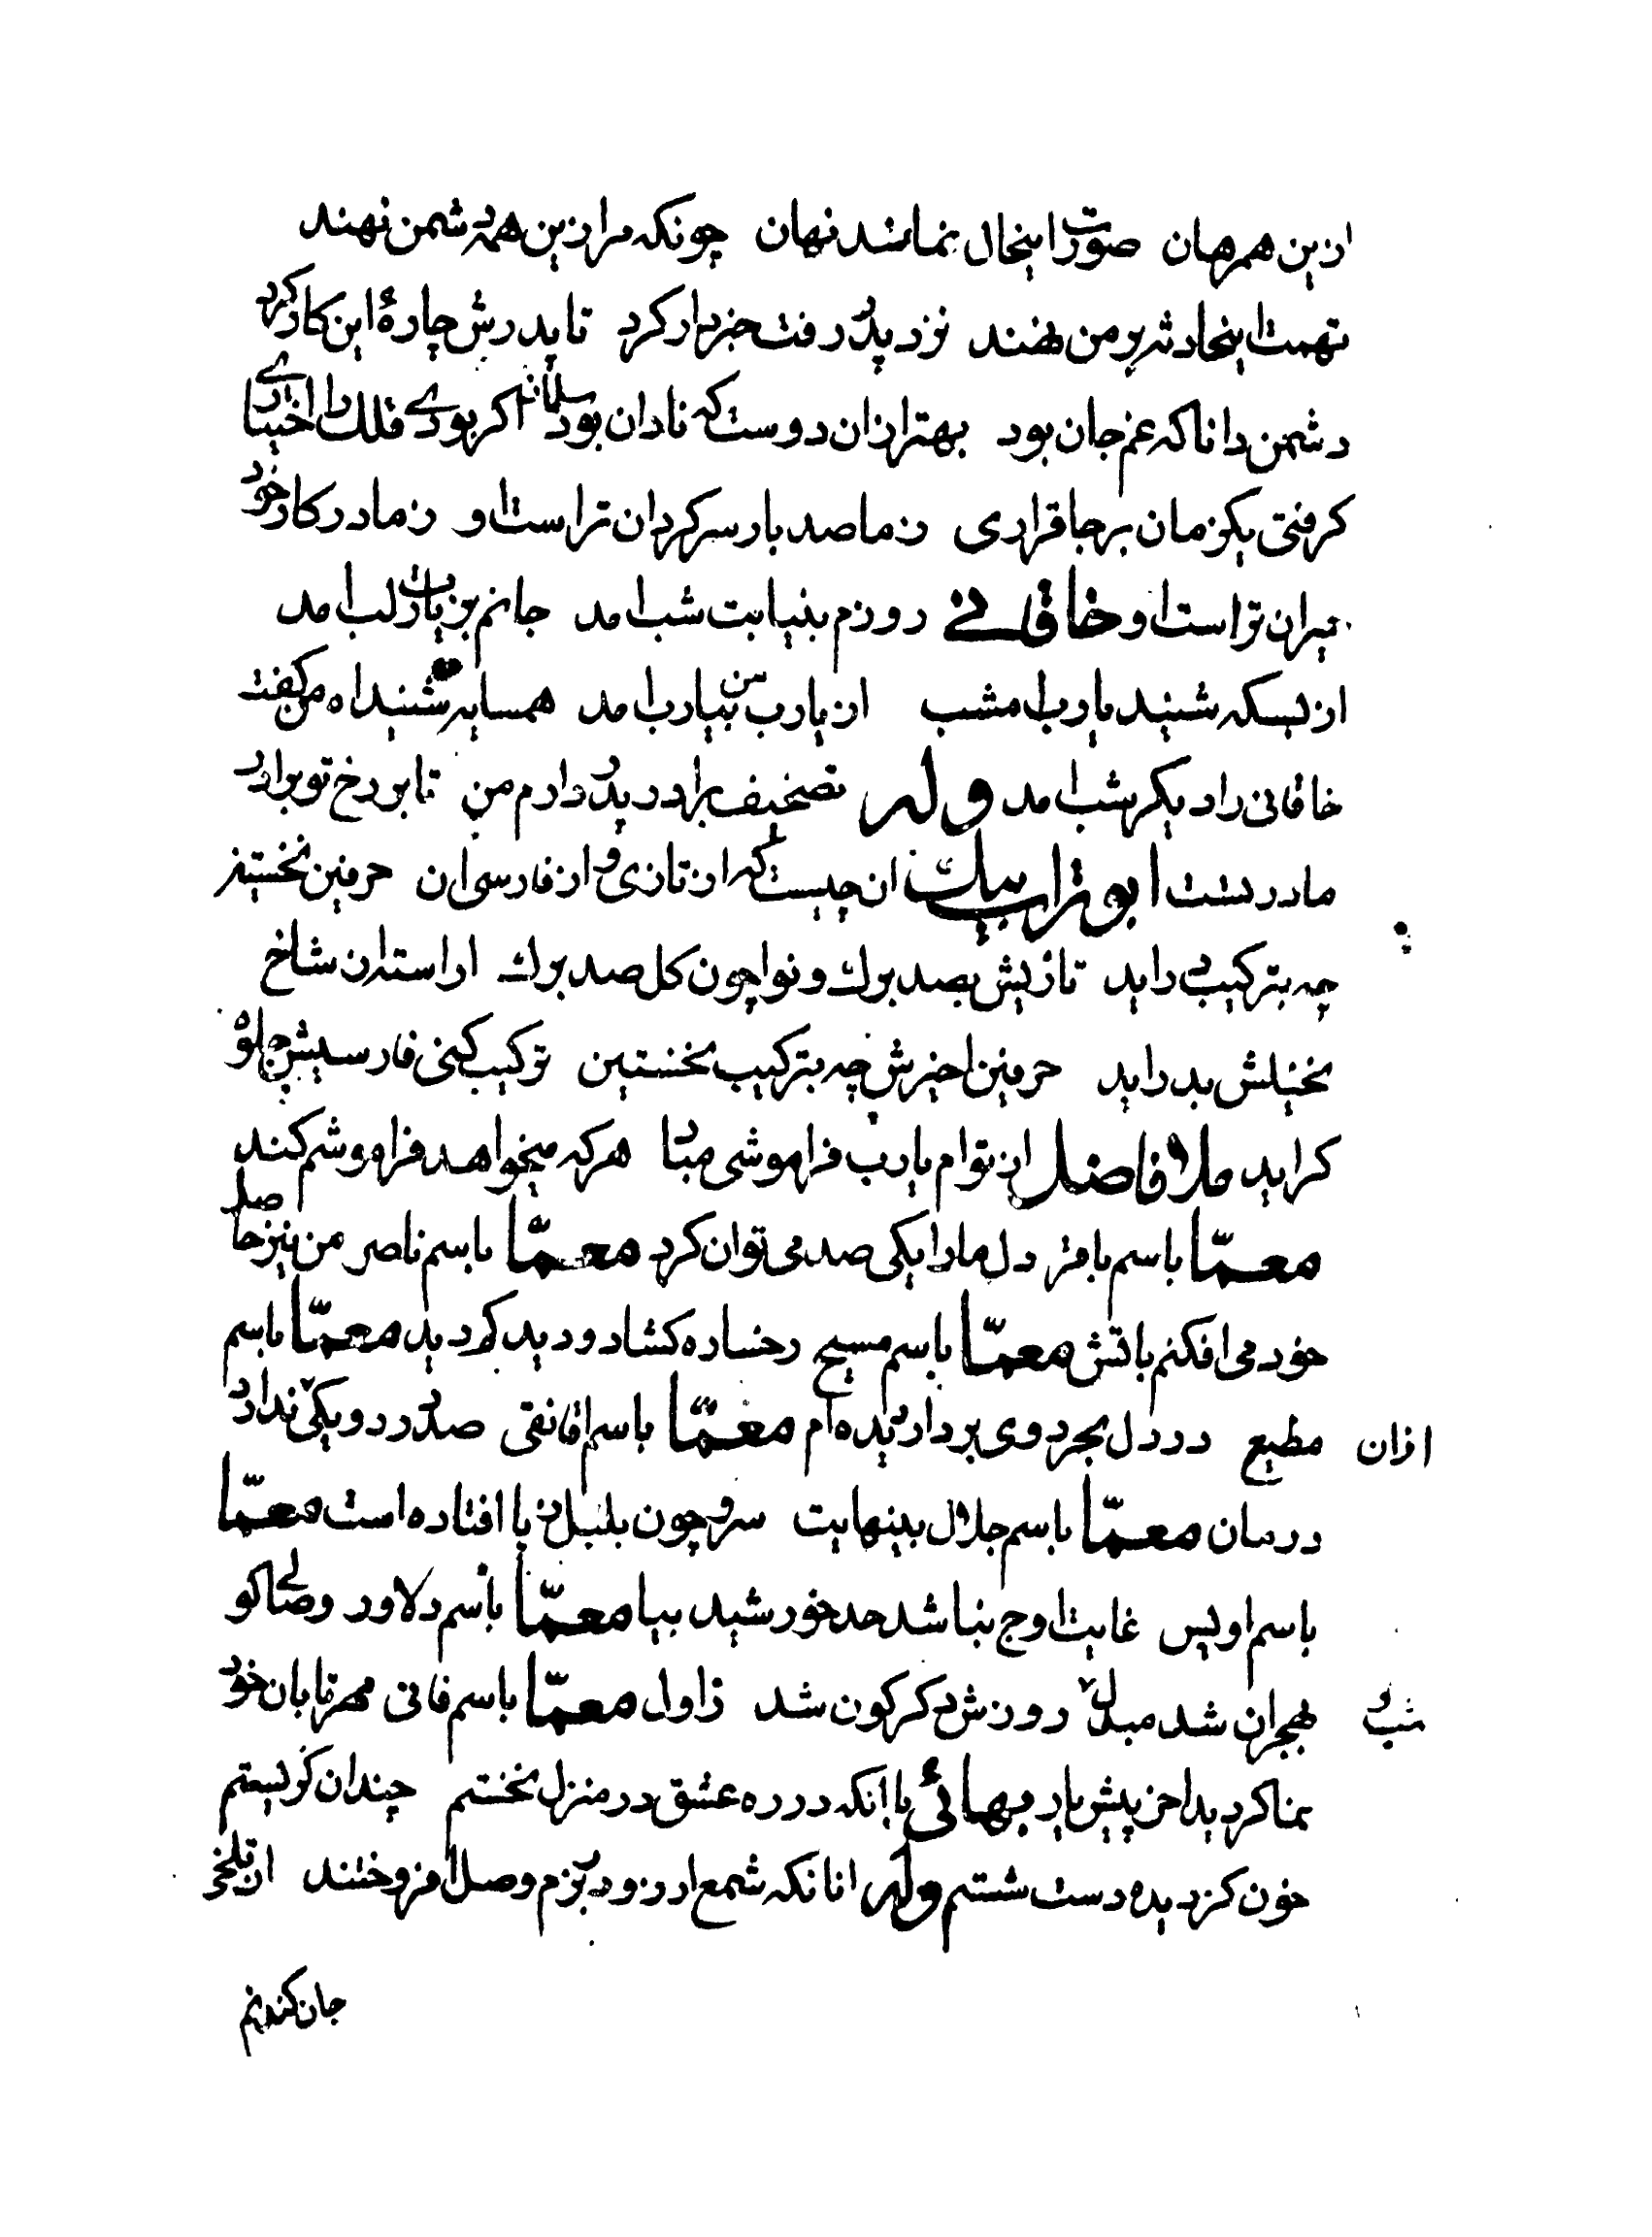 ازین همرهان صورت اینحال نماند نهان چونکه مرا زین همه دشمن نهند
تهمت اینحادثه بر من نهند نزد پدر رفت خبردار کرد تا پدرش چارهٔ این کار کرد
دشمن دانا که غم جان بود بهتر ازان دوست که نادان بود سلمان اگر بودی فلک را اختیاری
کرفتی یکزمان بر جا قراری ز ما صد بار سرکردان تراست او ز ما در کار خود
حیران تراست او خاقانی روزم بنیابت شب امد جانم بزیارت لب امد
از بسکه شنید یارب امشب از یارب من بیارب امد همسایه شنید اه من کفت
خاقانی را دیکر شب امد وله تصحیف برادر پدر دارم من تا بر رخ تو برادر
مادر تست ابوتراب بیک ان چیست که از تازی و از فارسی ان حرفین نخستینر
چه بترکیب دراید تازیش بصد برک و نوا چون کل صد برک اراسته از شاخ
نخیلش بدراید حرفین اخیرش چه بترکیب نخستین ترکیب کنی فارسیش جلوه
کراید ملا فاضل از توام یارب فراموشی مباد هرکه میخواهد فراموشم کند
معمّا باسم باقر دل ما را بیکی صد می توان کرد معمّا باسم ناصر من نیز حاصل
خود می افکنم باتش معمّا باسم مسیح رخساره کشاد و دید که دید معمّا باسم
مطیع در دل بحر دوی بر دار دیده ام معمّا باسم اقا نقی صد درد و یکی ندارد
ازان
درمان معمّا باسم جلال بینهایت سرو چون بلبل ز پا افتاده است معمّا
باسم اویس غایت اوج نباشد حد خورشید بیا معمّا باسم دلاور وصالی کو
بهجران شد مبدل روزش دکرکون شد ز اول معمّا باسم فانی مهر تابان خود
شب و
نما کردید اخر پیش یار بهائی با انکه در ره عشق در منزل نخستم چندان کریستم
خون کز دیده دست شستم وله انانکه شمع ارزو در بزم وصل افروختند از تلخی
جان کندنم